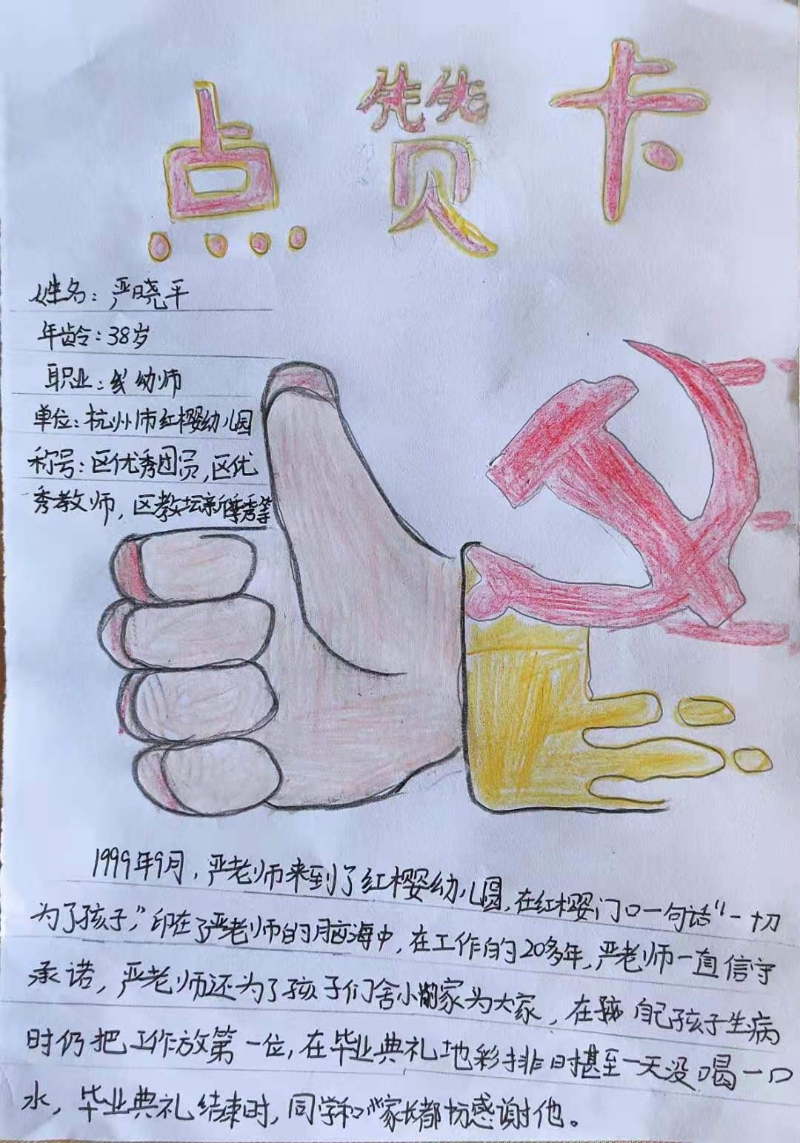 点赞卡
姓名：严晓平
年龄：38岁
职业：幼师
单位：杭州市红樱幼儿园
称号：区优秀团员，区优
秀教师，区教坛新秀等
1999年9月，严老师来到了红樱幼儿园，在红樱门口一句话“一切
为了孩子，”印在了严老师的脑海中，在工作的20多年，严老师一直信守
承诺，严老师还为了孩子们舍小家为大家，在自己孩子生病
时仍把工作放第一位，在毕业典礼地彩排时甚至一天没喝一口
水，毕业典礼结束时，同学和家长都扬感谢他。